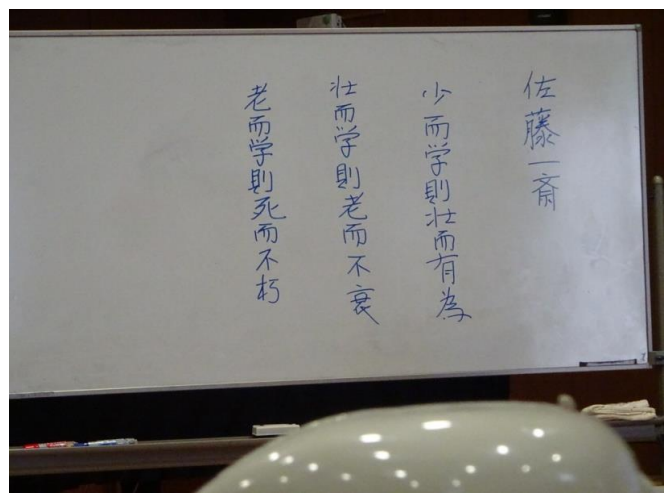 佐藤一斎
少而学則壮而有為
壮而学則老而不衰
老而学則死而不朽